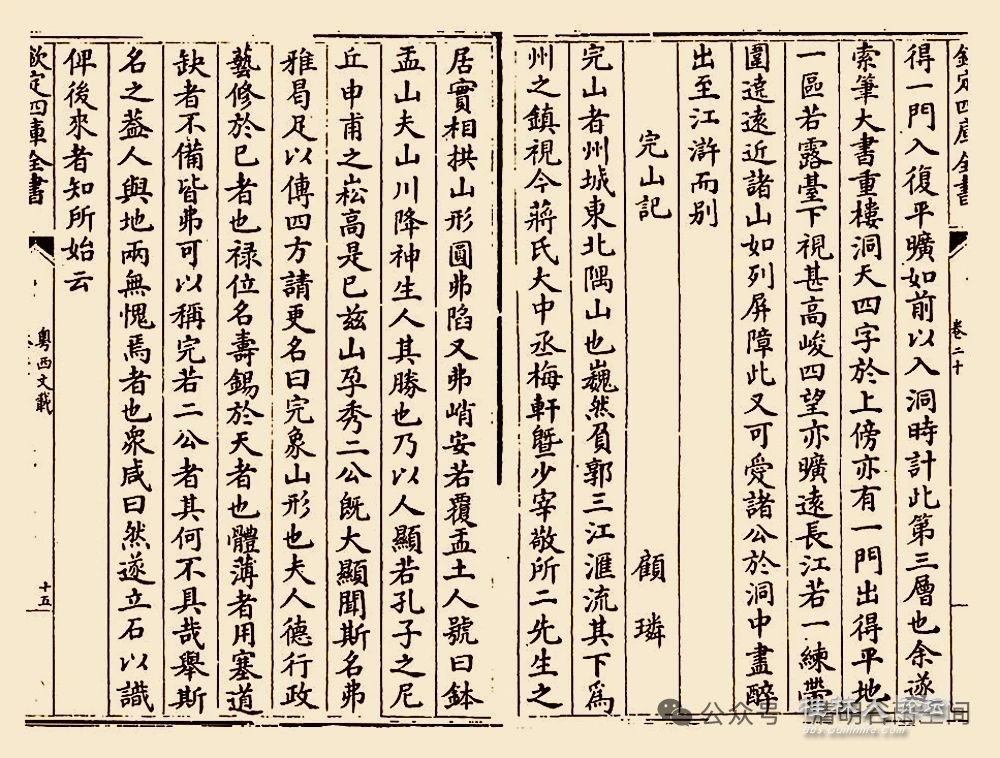 欽定四庫全書
卷二十
得一門入復平曠如前以入洞時計此第三層也余遂
索筆大書重樓洞天四字於上傍亦有一門出得平地
一區若露臺下視甚高峻四望亦曠遠長江若一練帶
圍遶遠近諸山如列屏障此又可愛諸公於洞中盡醉
出至江滸而别
完山記
顧璘
完山者州城東北隅山也巍然負郭三江滙流其下為
州之鎮視今蔣氏大中丞梅軒曁少宰敬所二先生之
居實相拱山形圓弗陷又弗峭安若覆盂土人號曰鉢
盂山夫山川降神生人其勝也乃以人顯若孔子之尼
丘申甫之崧高是已兹山孕秀二公旣大顯聞斯名弗
雅曷足以傳四方請更名曰完象山形也夫人德行政
藝修於己者也禄位名壽錫於天者也體薄者用塞道
缺者不備皆弗可以稱完若二公者其何不具哉舉斯
名之葢人與地兩無愧焉者也衆咸曰然遂立石以識
俾後來者知所始云
欽定四庫全書
粵西文載
十五
公众号